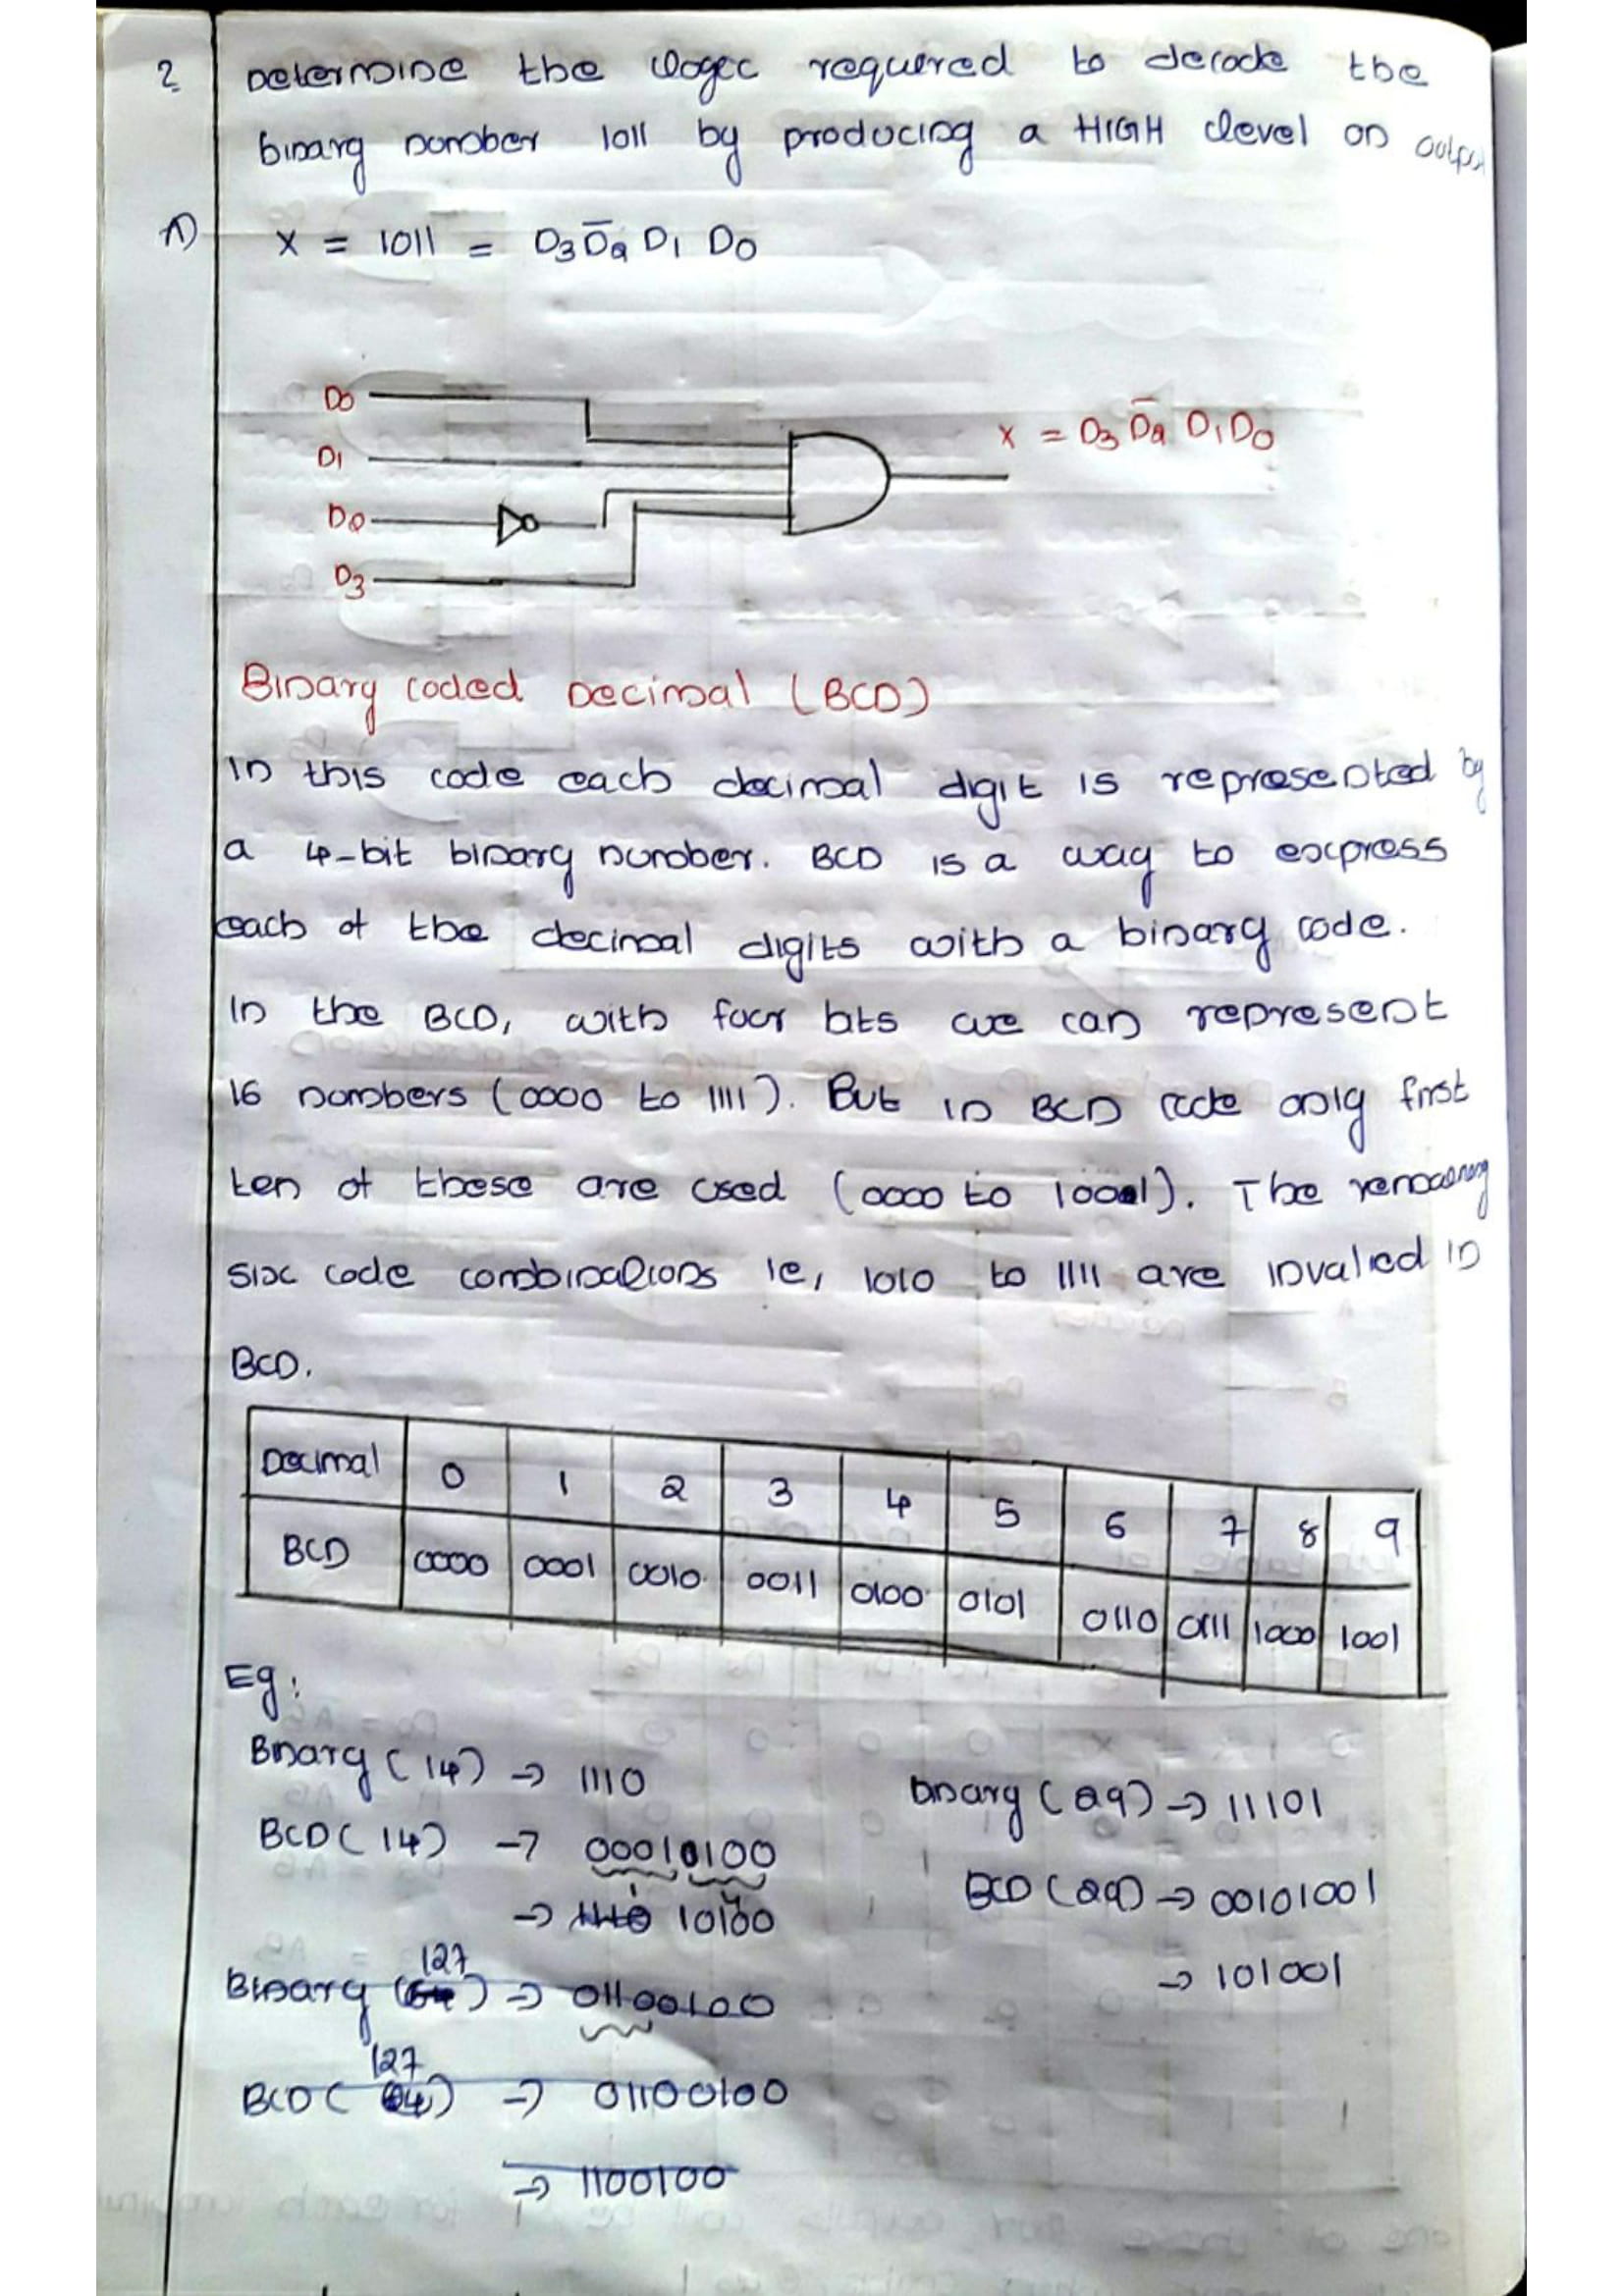 ? Determine the logic required to decode the
binary number 1011 by producing a HIGH level on output
A) X = 1011 = D3 D̅2 D1 D0
D0
D1
D2
D3
X = D3 D̅2 D1 D0
Binary coded Decimal (BCD)
In this code each decimal digit is represented by
a 4-bit binary number. BCD is a way to express
each of the decimal digits with a binary code.
In the BCD, with four bits we can represent
16 numbers (0000 to 1111). But in BCD code only first
ten of these are used (0000 to 1001). The remaining
six code combinations ie, 1010 to 1111 are invalied in
BCD.
Decimal 0 1 2 3 4 5 6 7 8 9
BCD 0000 0001 0010 0011 0100 0101 0110 0111 1000 1001
Eg:
Binary (14) → 1110
BCD (14) → 00010100
→ 10100
Binary (29) → 11101
BCD (29) → 00101001
→ 101001
Binary (127) → 01100100
BCD (127) → 01100100
→ 1100100